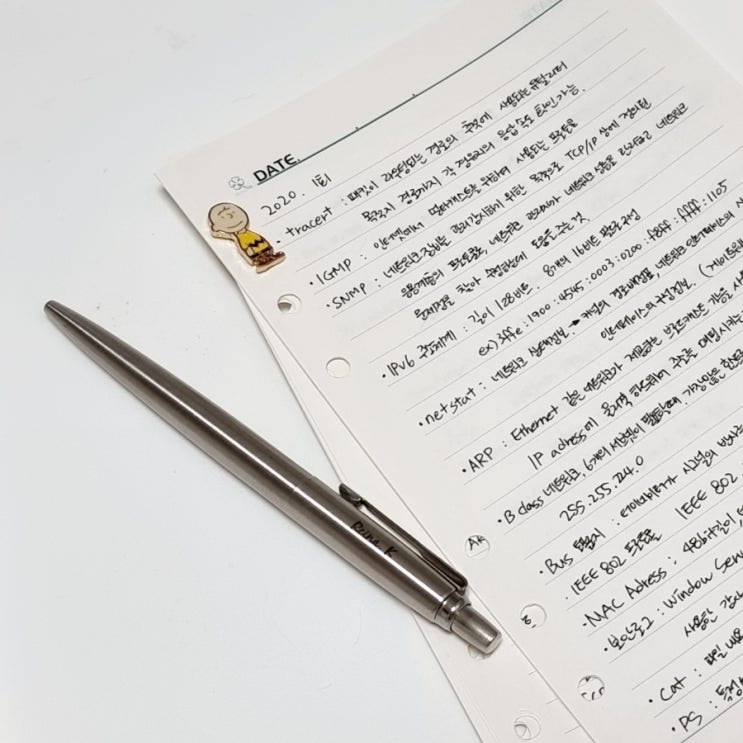 DATE.
2020. 1회
· tracert : 패킷이 라우팅되는 경로의 추적에 사용되는 유틸리티
목적지 경로까지 각 경유지의 응답 속도 확인가능.
· IGMP : 인터넷에서 멀티캐스트를 위하여 사용되는 프로토콜
· SNMP : 네트워크 장비를 관리 감시하기 위한 목적으로 TCP/IP 상에 정의된
응용계층의 프로토콜, 네트워크 관리자가 네트워크 성능을 관리하고 네트워크
문제점을 찾아 수정하는데 도움을 주는 것
· IPv6 주소체계 : 길이 128비트. 8개의 16비트 필드로 구성
ex) 3ffe:1900:4545:0003:0200:f8ff:ffff:1105
· netstat : 네트워크 상태정보 → 커널의 경로배정표, 네트워크 인터페이스의
인터페이스의 구성정보. (게이트웨이
· ARP : Ethernet 같은 네트워크가 제공하는 브로드캐스트 기능을
IP adress에 물리적 하드웨어 주소를 매핑시키는
· B class 네트워크, 6개의 서브넷이 필요할 때, 가장많은
255.255.224.0
· Bus 토폴로지 :
· IEEE 802 프로토콜 IEEE 802.
· MAC Adress : 48bit
· 보안로그 : Window Serv
사용한
· Cat : 파일 내용
· PS :
Reina. K